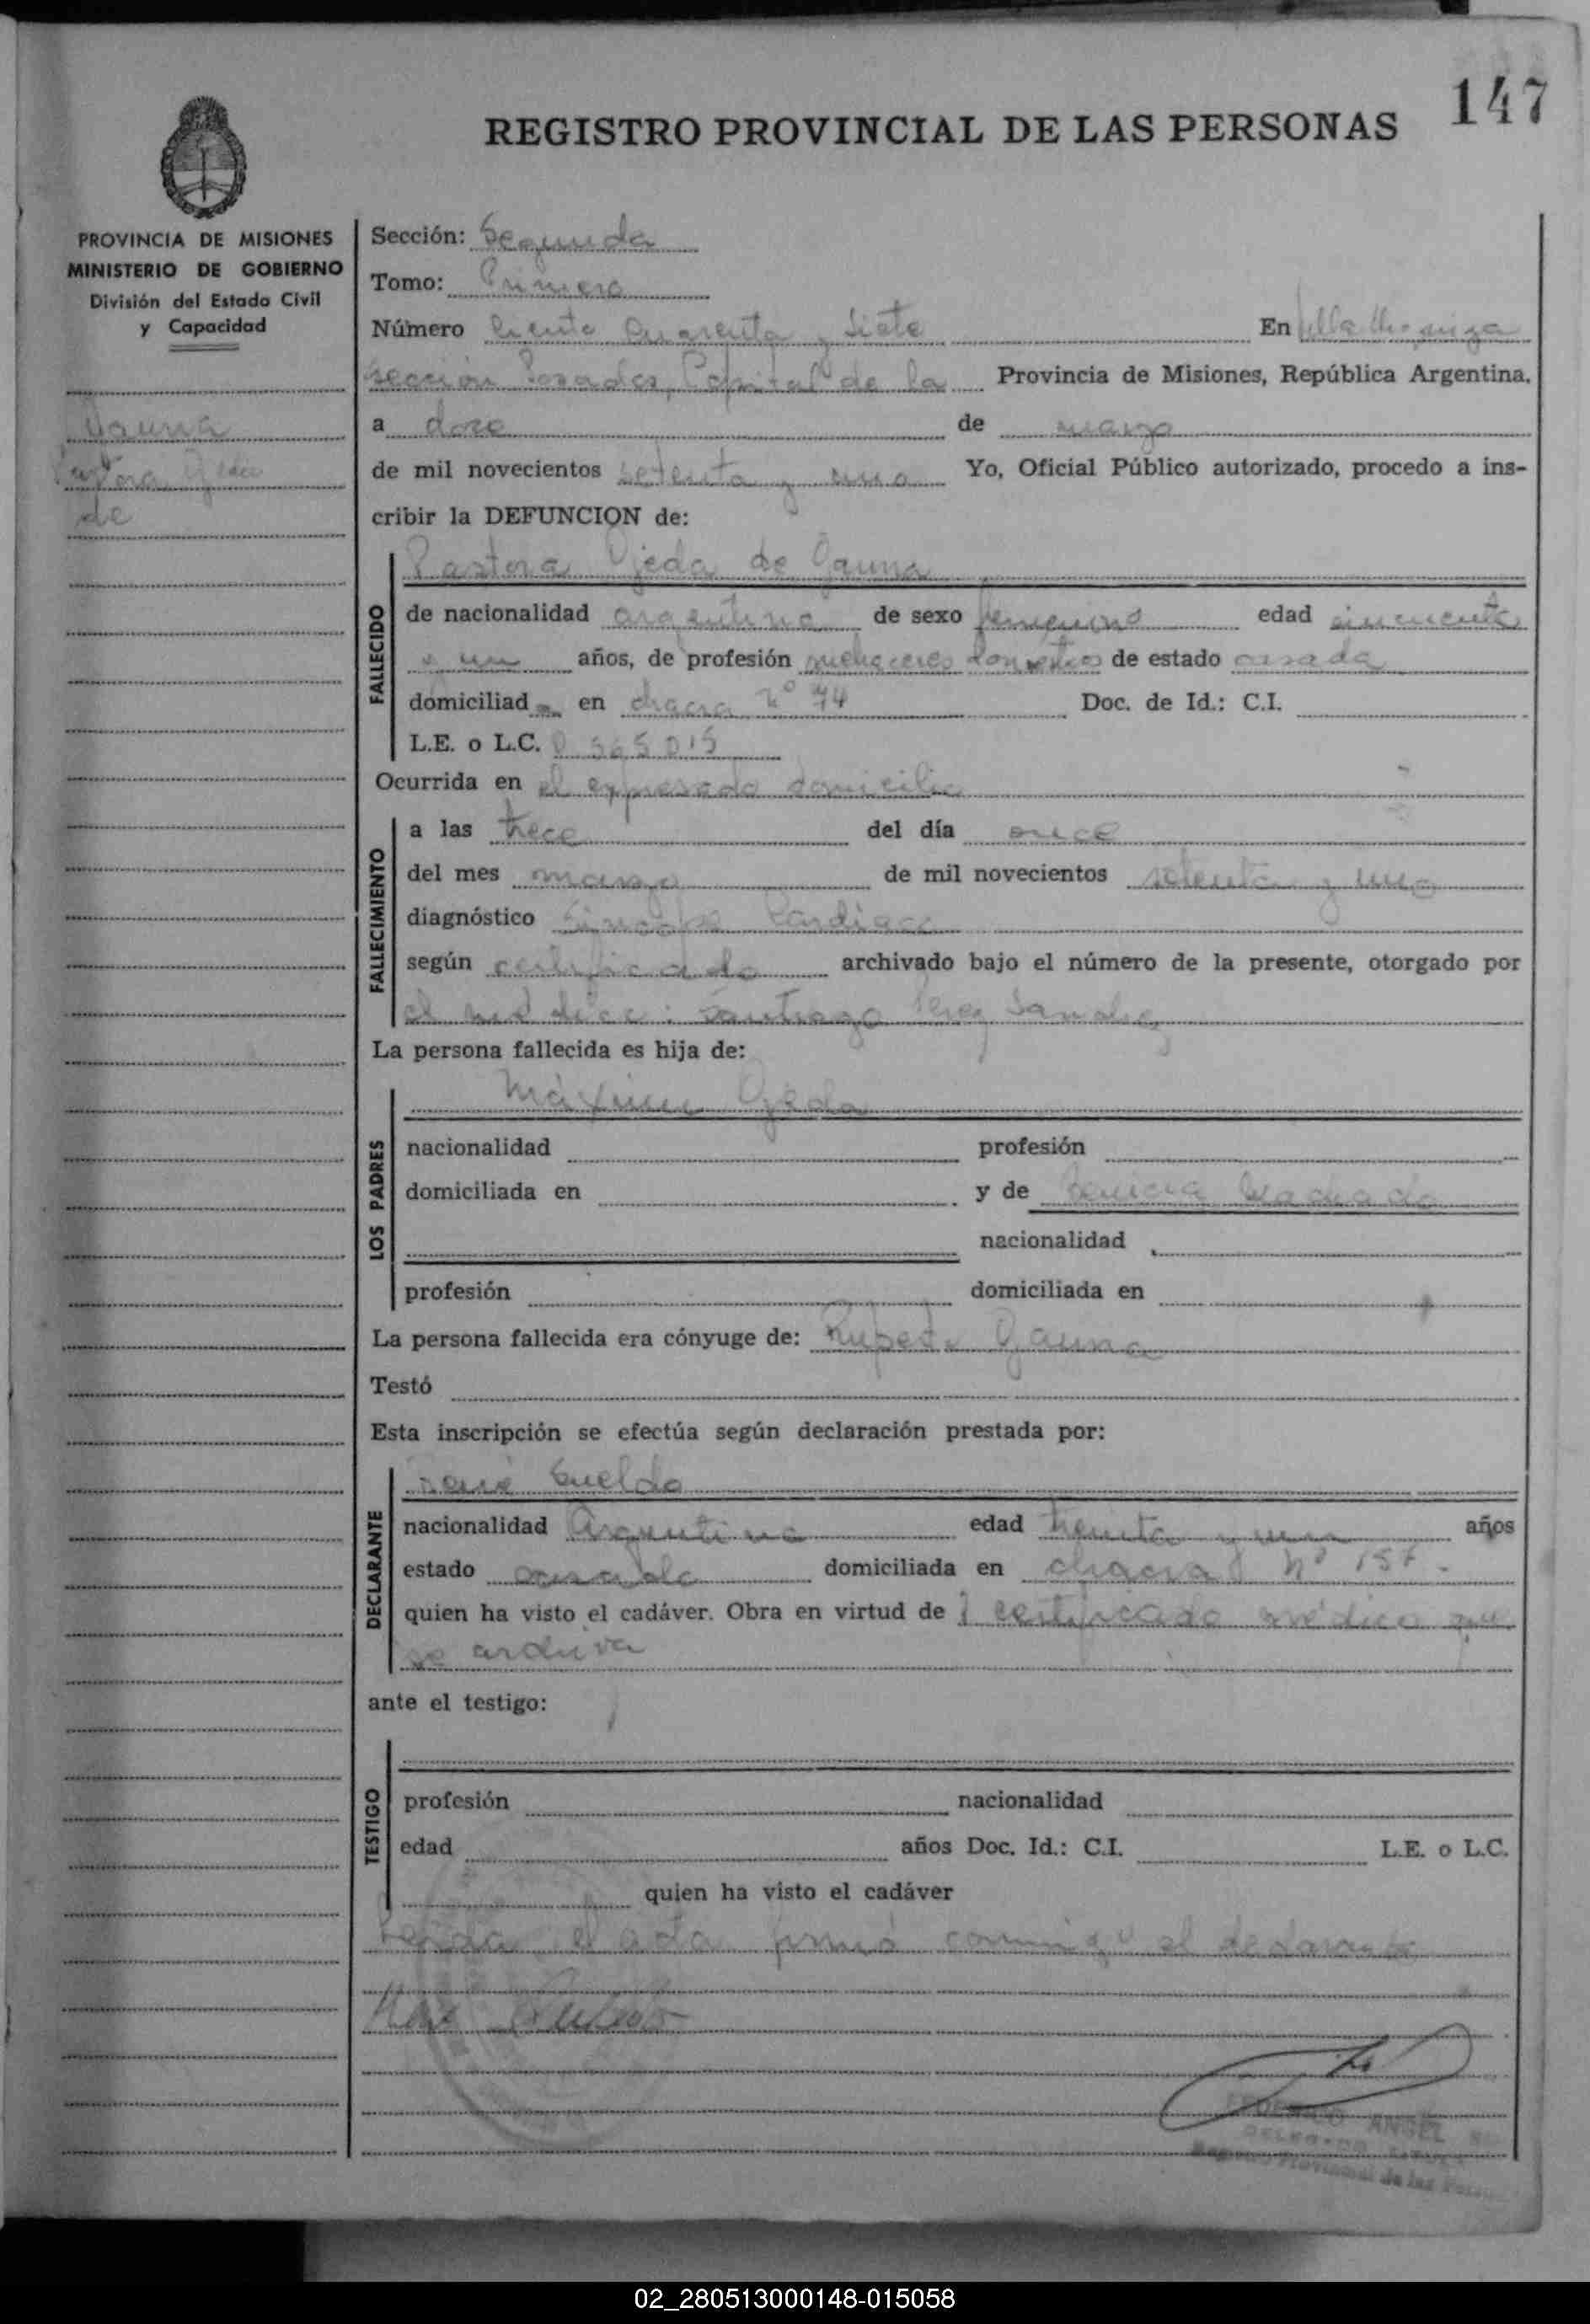 147
REGISTRO PROVINCIAL DE LAS PERSONAS
PROVINCIA DE MISIONES
MINISTERIO DE GOBIERNO
División del Estado Civil
y Capacidad
Gauna
Pastora Ojeda
de
Sección: Segunda
Tomo: Primero
Número Ciento Cuarenta y Siete En Villa
Sección Posadas, Capital de la Provincia de Misiones, República Argentina,
a doce de marzo
de mil novecientos setenta y uno Yo, Oficial Público autorizado, procedo a ins-
cribir la DEFUNCION de:
FALLECIDO
Pastora Ojeda de Gauna
de nacionalidad argentina de sexo femenino edad cincuenta
y un años, de profesión quehaceres domésticos de estado casada
domiciliad a en chacra Nº 74 Doc. de Id.: C.I.
L.E. o L.C.
Ocurrida en el expresado domicilio
FALLECIMIENTO
a las trece del día once
del mes marzo de mil novecientos setenta y uno
diagnóstico Sincope Cardiaco
según certificado archivado bajo el número de la presente, otorgado por
el médico: Santiago Perez Sanchez
La persona fallecida es hija de:
LOS PADRES
Máximo Ojeda
nacionalidad profesión
domiciliada en y de
nacionalidad
profesión domiciliada en
La persona fallecida era cónyuge de: Ruperto Gauna
Testó
Esta inscripción se efectúa según declaración prestada por:
DECLARANTE
nacionalidad Argentina edad treinta y un años
estado domiciliada en chacra Nº 157.
quien ha visto el cadáver. Obra en virtud de certificado médico que
se archiva
ante el testigo:
TESTIGO
profesión nacionalidad
edad años Doc. Id.: C.I. L.E. o L.C.
quien ha visto el cadáver
el acta firmó conmigo el declarante
ANGEL
Registro Provincial de las
02_280513000148-015058